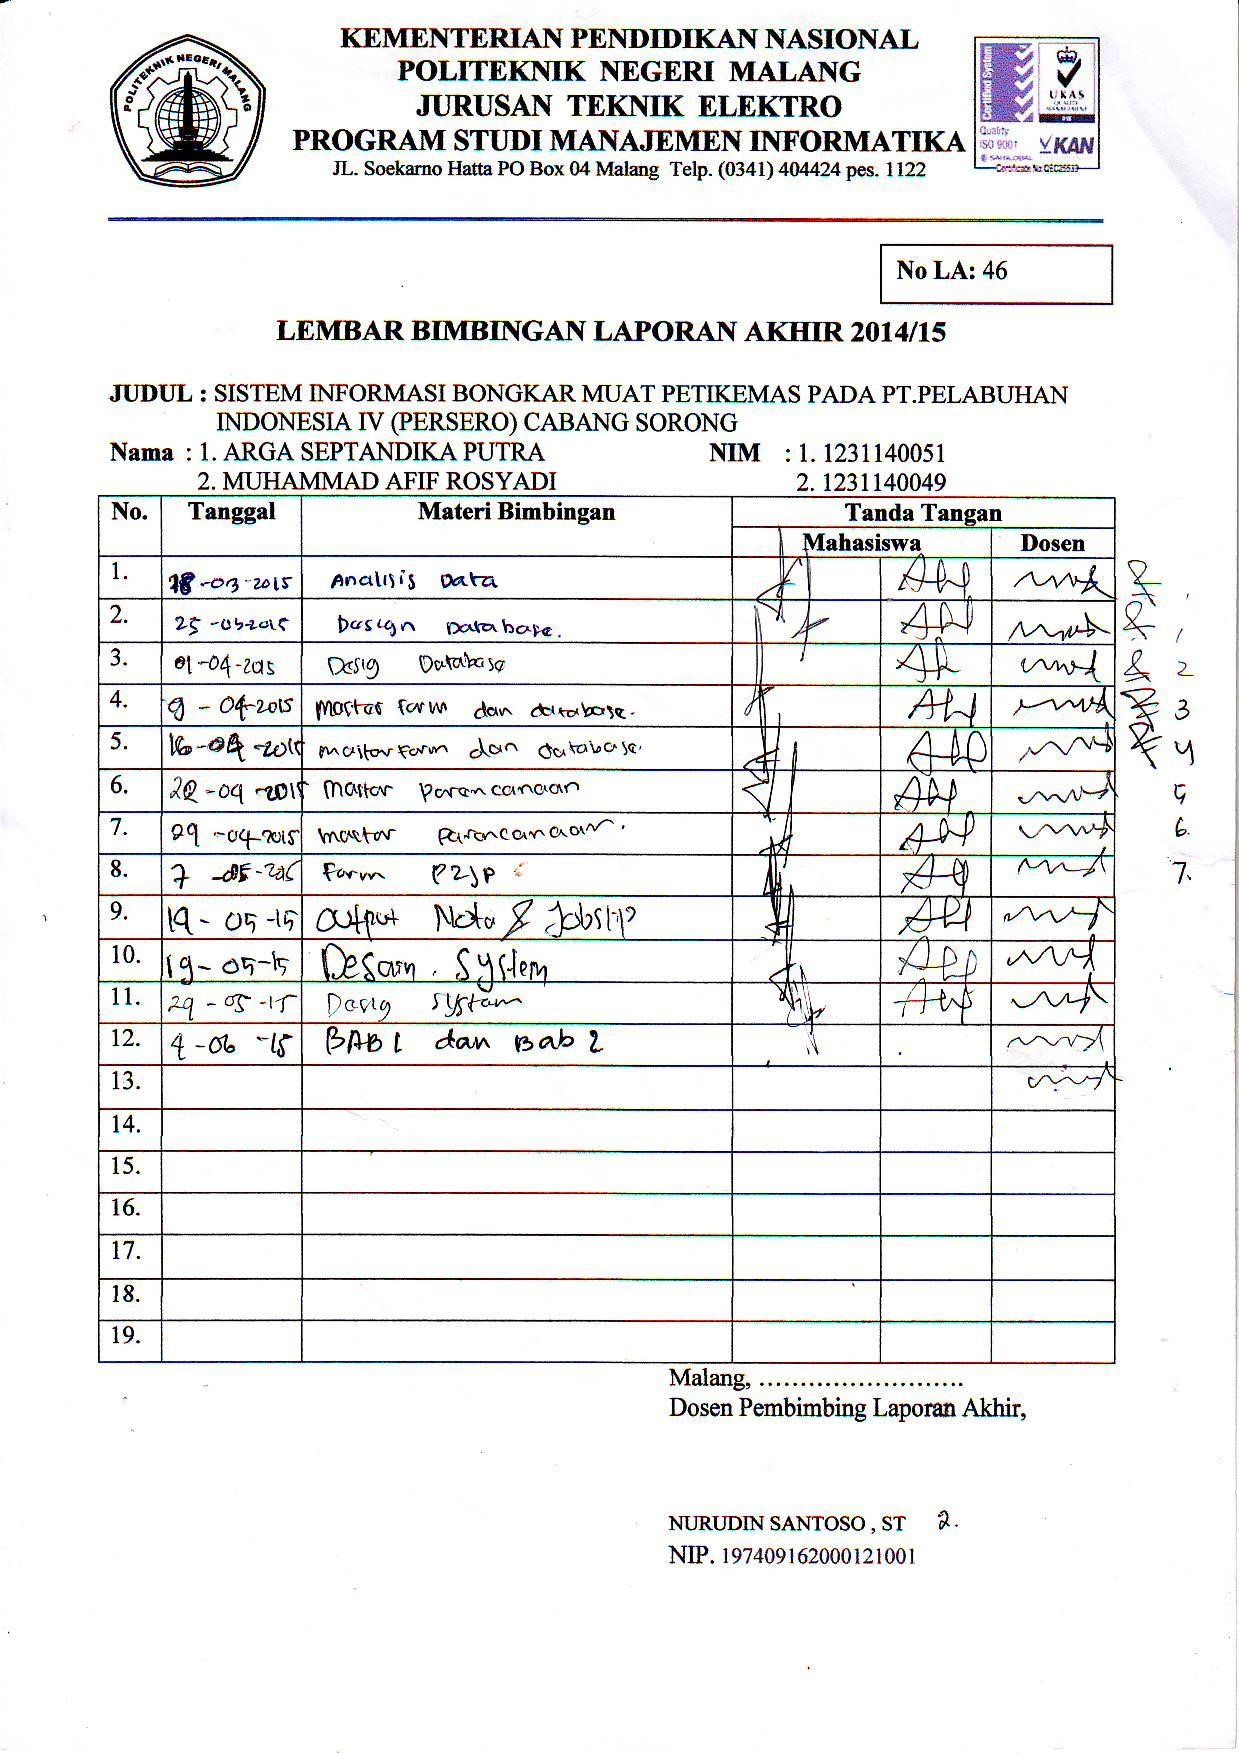 KEMENTERIAN PENDIDIKAN NASIONAL
POLITEKNIK NEGERI MALANG
JURUSAN TEKNIK ELEKTRO
PROGRAM STUDI MANAJEMEN INFORMATIKA
JL. Soekarno Hatta PO Box 04 Malang Telp. (0341) 404424 pes. 1122
POLITEKNIK NEGERI MALANG
Certified System
UKAS
QUALITY
MANAGEMENT
Quality
ISO 9001
KAN
SAI GLOBAL
Certificate No QEC25533
No LA: 46
LEMBAR BIMBINGAN LAPORAN AKHIR 2014/15
JUDUL : SISTEM INFORMASI BONGKAR MUAT PETIKEMAS PADA PT.PELABUHAN
INDONESIA IV (PERSERO) CABANG SORONG
Nama : 1. ARGA SEPTANDIKA PUTRA NIM : 1. 1231140051
2. MUHAMMAD AFIF ROSYADI 2. 1231140049
No. Tanggal Materi Bimbingan Tanda Tangan
Mahasiswa Dosen
1. 18-03-2015 Analisis Data
2. 25-03-2015 Design Database.
3. 01-04-2015 Desig Database 2
4. 9 - 04-2015 Master form dan database. 3
5. 16-04-2015 master form dan database. 4
6. 22-04-2015 Master Perencanaan 5
7. 29-04-2015 master perencanaan. 6.
8. 7 -05-2015 Form P2JP 7.
9. 19-05-15 Output Nota & Jobslip
10. 19-05-15 Desain System
11. 29-05-15 Desig system
12. 4-06-15 BAB 1 dan Bab 2
13.
14.
15.
16.
17.
18.
19.
Malang, ..........................
Dosen Pembimbing Laporan Akhir,
NURUDIN SANTOSO , ST 2.
NIP. 197409162000121001